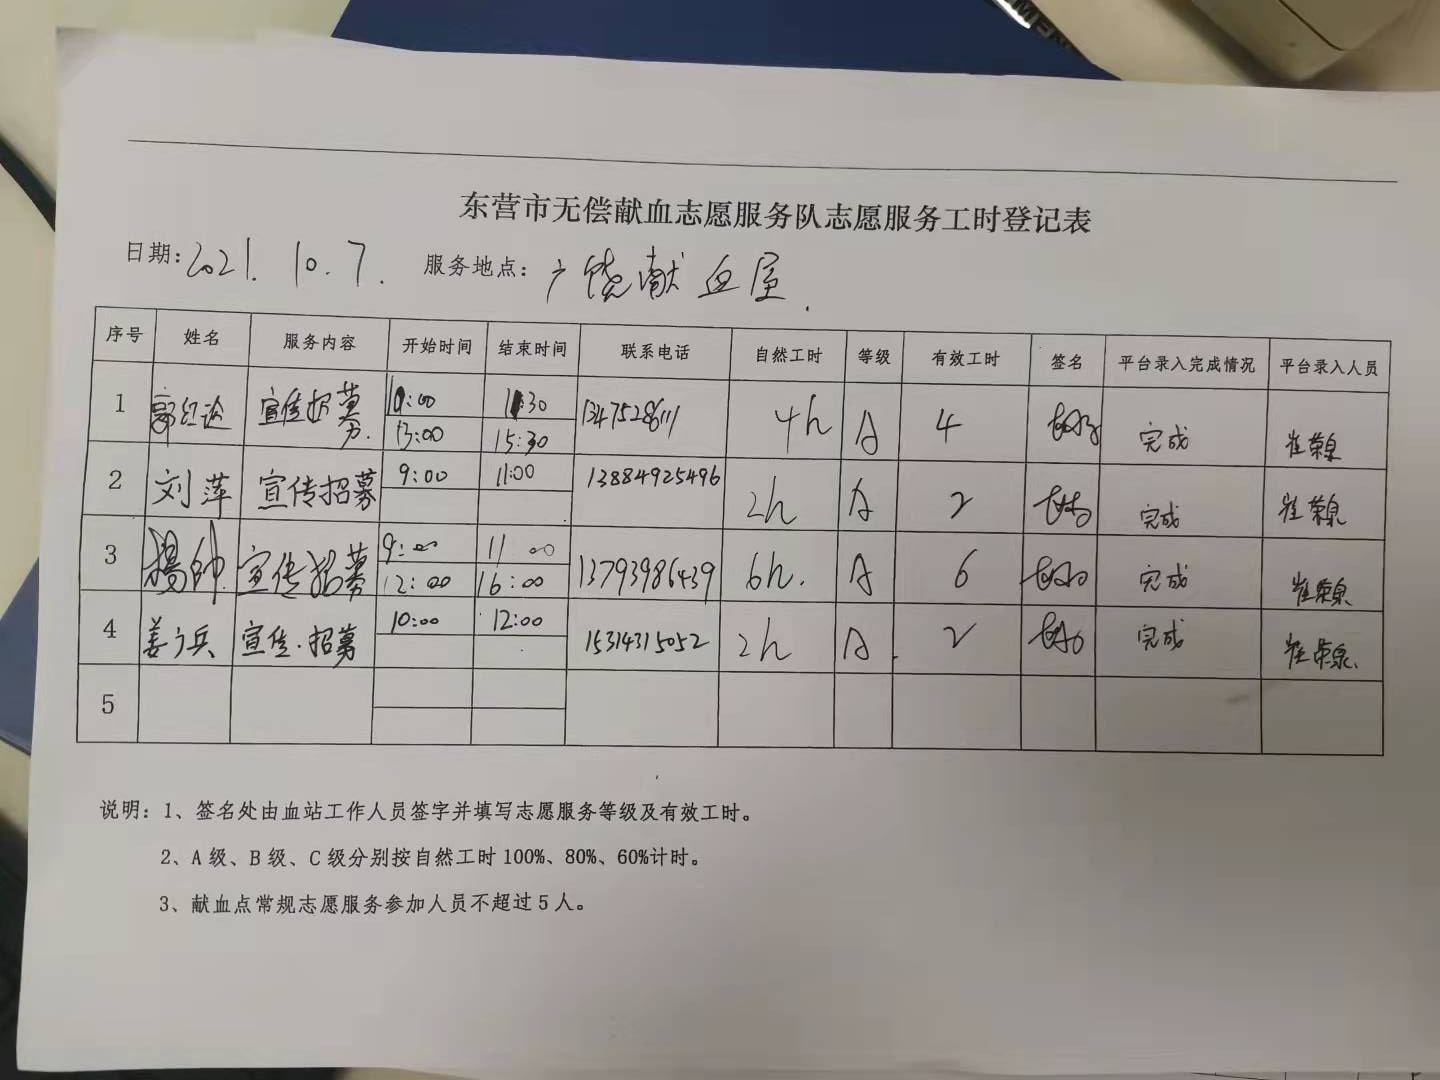 东营市无偿献血志愿服务队志愿服务工时登记表
日期: 2021. 10. 7. 服务地点: 广饶献血屋.
序号 姓名 服务内容 开始时间 结束时间 联系电话 自然工时 等级 有效工时 签名 平台录入完成情况 平台录入人员
1 宣传招募 10:00 11:30 13475286111 4h A 4 完成 崔荣泉
13:00 15:30
2 刘萍 宣传招募 9:00 11:00 13884925496 2h A 2 完成 崔荣泉
3 杨帅 宣传招募 9:00 11 00 13793986439 6h. A 6 完成 崔荣泉
12:00 16:00
4 姜广兵 宣传.招募 10:00 12:00 15314315052 2h A. 2 完成 崔荣泉.
5
说明: 1、签名处由血站工作人员签字并填写志愿服务等级及有效工时。
2、A级、B级、C级分别按自然工时100%、80%、60%计时。
3、献血点常规志愿服务参加人员不超过5人。